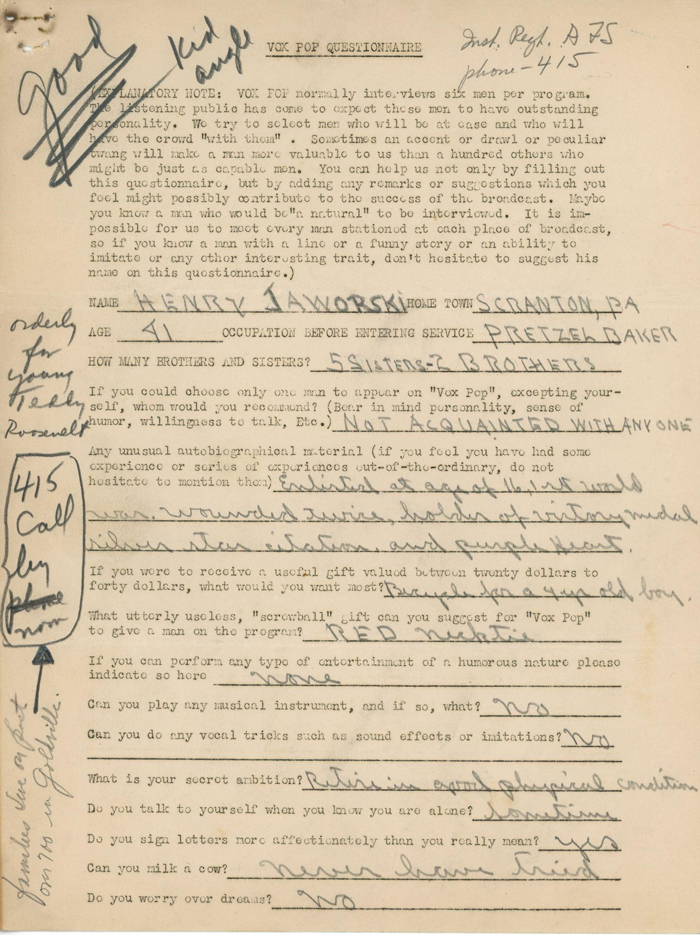 Good
Kid
angle
VOX POP QUESTIONNAIRE
Inst. Regt. A 75
phone - 415
(EXPLANATORY NOTE: VOX POP normally interviews six men per program.
The listening public has come to expect these men to have outstanding
personality. We try to select men who will be at ease and who will
have the crowd "with them" . Sometimes an accent or drawl or peculiar
twang will make a man more valuable to us than a hundred others who
might be just as capable men. You can help us not only by filling out
this questionnaire, but by adding any remarks or suggestions which you
feel might possibly contribute to the success of the broadcast. Maybe
you know a man who would be"a natural" to be interviowed. It is im-
possible for us to meet every man stationed at each place of broadcast,
so if you know a man with a line or a funny story or an ability to
imitate or any other interesting trait, don't hesitate to suggest his
name on this questionnaire.)
NAME HENRY JAWORSKI HOME TOWN SCRANTON, PA
AGE 41 OCCUPATION BEFORE ENTERING SERVICE PRETZEL BAKER
HOW MANY BROTHERS AND SISTERS? 5 SISTERS-2 BROTHERS
If you could choose only one man to appear on "Vox Pop", excepting your-
self, whom would you recommend? (Bear in mind personality, sense of
humor, willingness to talk, Etc.) NOT ACQUAINTED WITH ANY ONE
Any unusual autobiographical material (if you feel you have had some
experience or series of experiences out-of-the-ordinary, do not
hesitate to mention them) Enlisted at age of 16, 1st world
war. wounded twice, holder of victory medal
silver star citation and purple Heart.
If you were to receive a useful gift valued between twenty dollars to
forty dollars, what would you want most? Bicycle for a 4 yr old boy.
What utterly useless, "screwball" gift can you suggest for "Vox Pop"
to give a man on the program? RED necktie
If you can perform any type of entertainment of a humorous nature please
indicate so here none
Can you play any musical instrument, and if so, what? No
Can you do any vocal tricks such as sound effects or imitations? No
What is your secret ambition? Retire in good physical condition
Do you talk to yourself when you know you are alone? sometime
Do you sign letters more affectionately than you really mean? yes
Can you milk a cow? never have tried
Do you worry over dreams? No
orderly
for
young
Teddy
Roosevelt
415
Call
by
phone
now
families live on post
over 700 in Goldville.